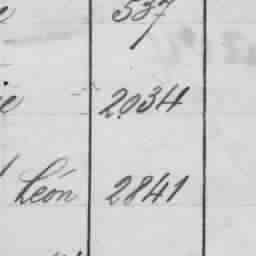 537
2034
Léon 2841